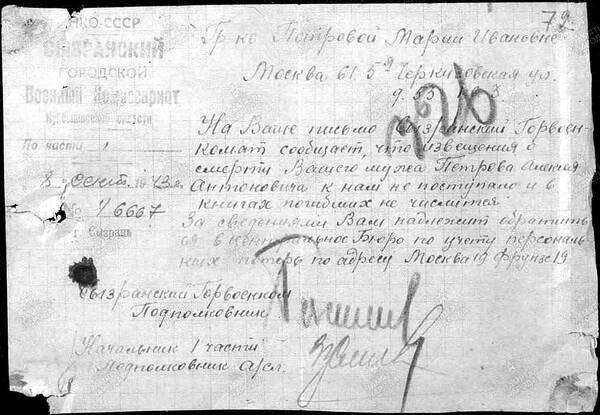 72
НКО-СССР
СЫЗРАНСКИЙ
ГОРОДСКОЙ
Военный Комиссариат
Куйбышевской области
По части 1
8 сент. 1943 г.
№ 1/6667
г. Сызрань
Гр-ке Петровой Марии Ивановне
Москва 61. 5я Черкизовская ул.
На Ваше письмо Сызранский Горвоен-
комат сообщает, что извещения о
смерти Вашего мужа Петрова Алексея
Антоновича к нам не поступало и в
книгах погибших не числится.
За сведениями Вам надлежит обратить-
ся в Центральное Бюро по учету персональ-
ных потерь по адресу Москва 19 Фрунзе 19
Сызранский Горвоенком
Подполковник
Начальник 1 части
Подполковник а/сл.